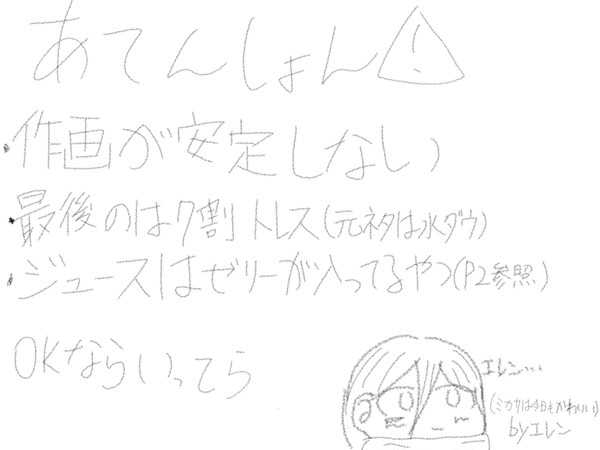 あてんしょん⚠
・作画が安定しない
・最後のは7割トレス(元ネタは水ダウ)
・ジュースはゼリーが入ってるやつ(P2参照)
OKならいってら
エレン…
(ミカサは今日もかわいい)
byエレン